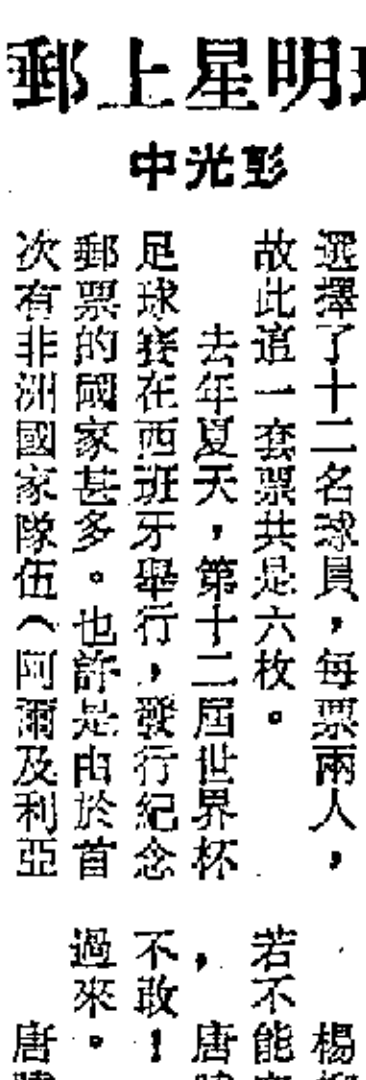 明星上郵
彭光中
選擇了十二名球員，每票兩人，
故此這一套票共是六枚。
去年夏天，第十二屆世界杯
足球賽在西班牙舉行，發行紀念
郵票的國家甚多。也許是由於首
次有非洲國家隊伍（阿爾及利亞
楊
若不能
，唐
不敢！
過來。
唐